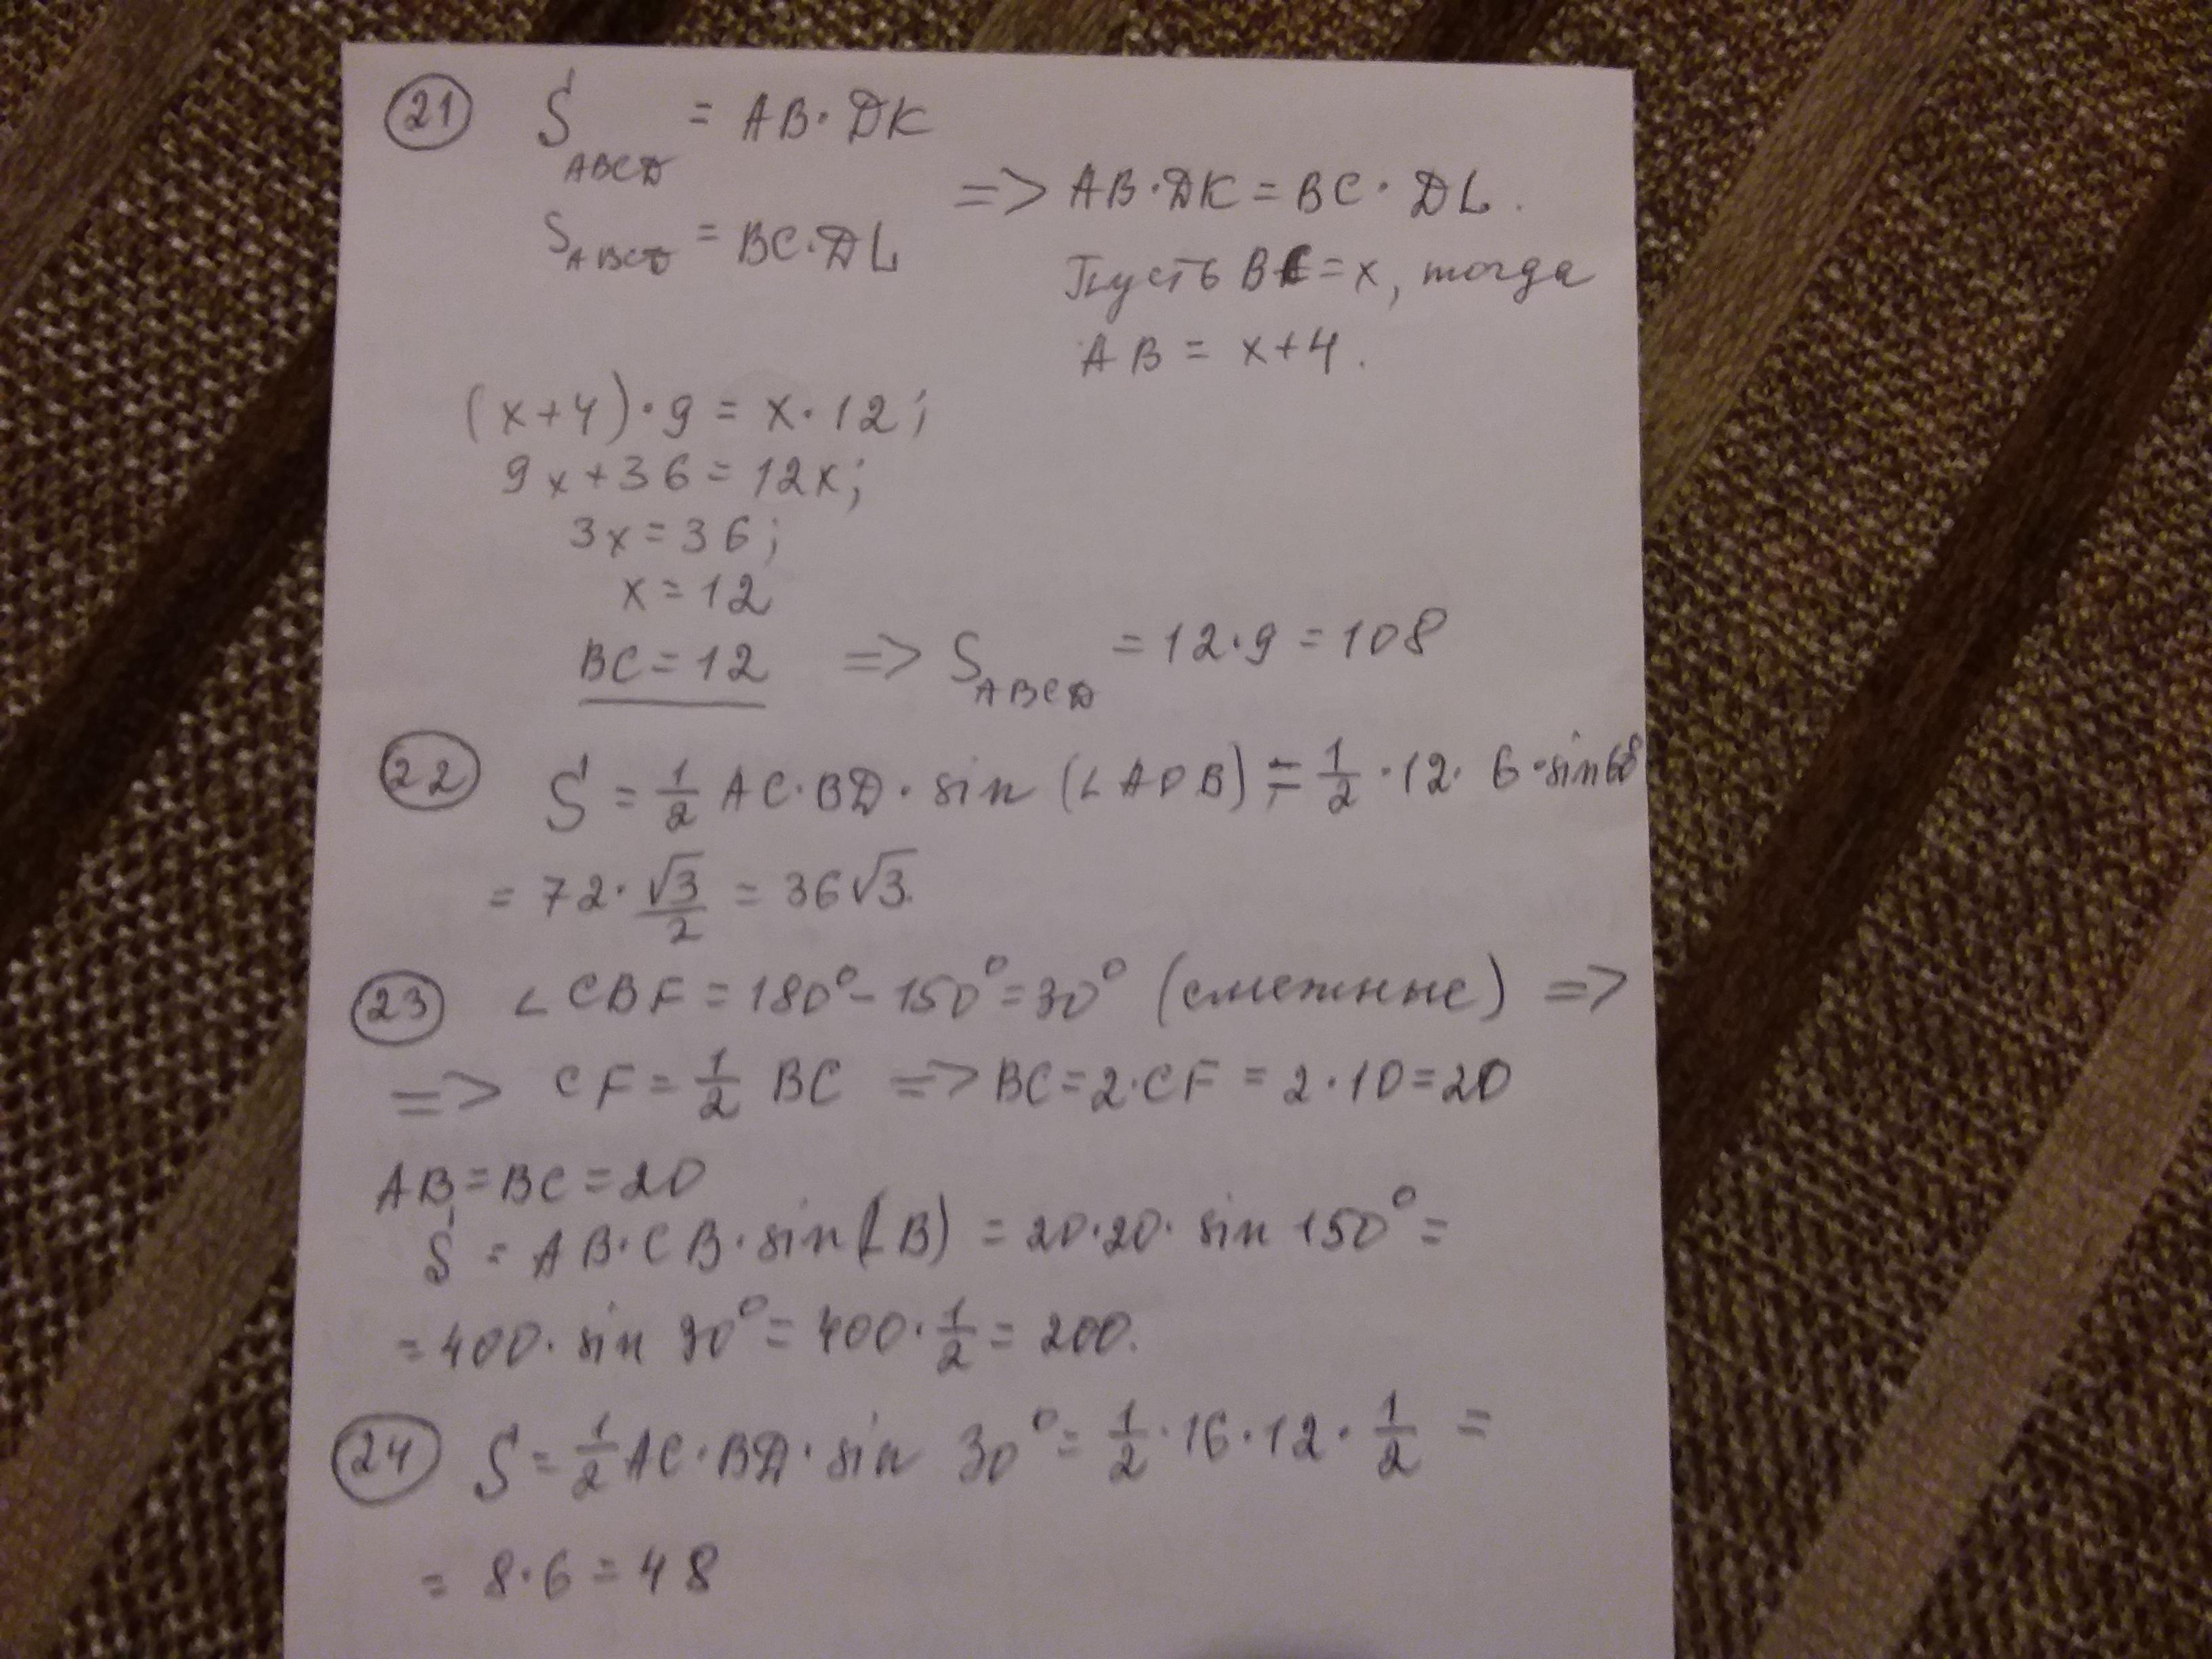 21 S ABCD = AB · DK
S ABCD = BC · DL
=> AB · DK = BC · DL.
Пусть BC = x, тогда
AB = x+4.
(x+4) · 9 = x · 12;
9x + 36 = 12x;
3x = 36;
x = 12
BC = 12 => S ABCD = 12 · 9 = 108
22 S = 1/2 AC · BD · sin (∠AOB) = 1/2 · 12 · 6 · sin 60°
= 72 · √3/2 = 36√3.
23 ∠CBF = 180° - 150° = 30° (смежные) =>
=> CF = 1/2 BC => BC = 2 · CF = 2 · 10 = 20
AB = BC = 20
S = AB · CB · sin(∠B) = 20 · 20 · sin 150° =
= 400 · sin 30° = 400 · 1/2 = 200.
24 S = 1/2 AC · BD · sin 30° = 1/2 · 16 · 12 · 1/2 =
= 8 · 6 = 48